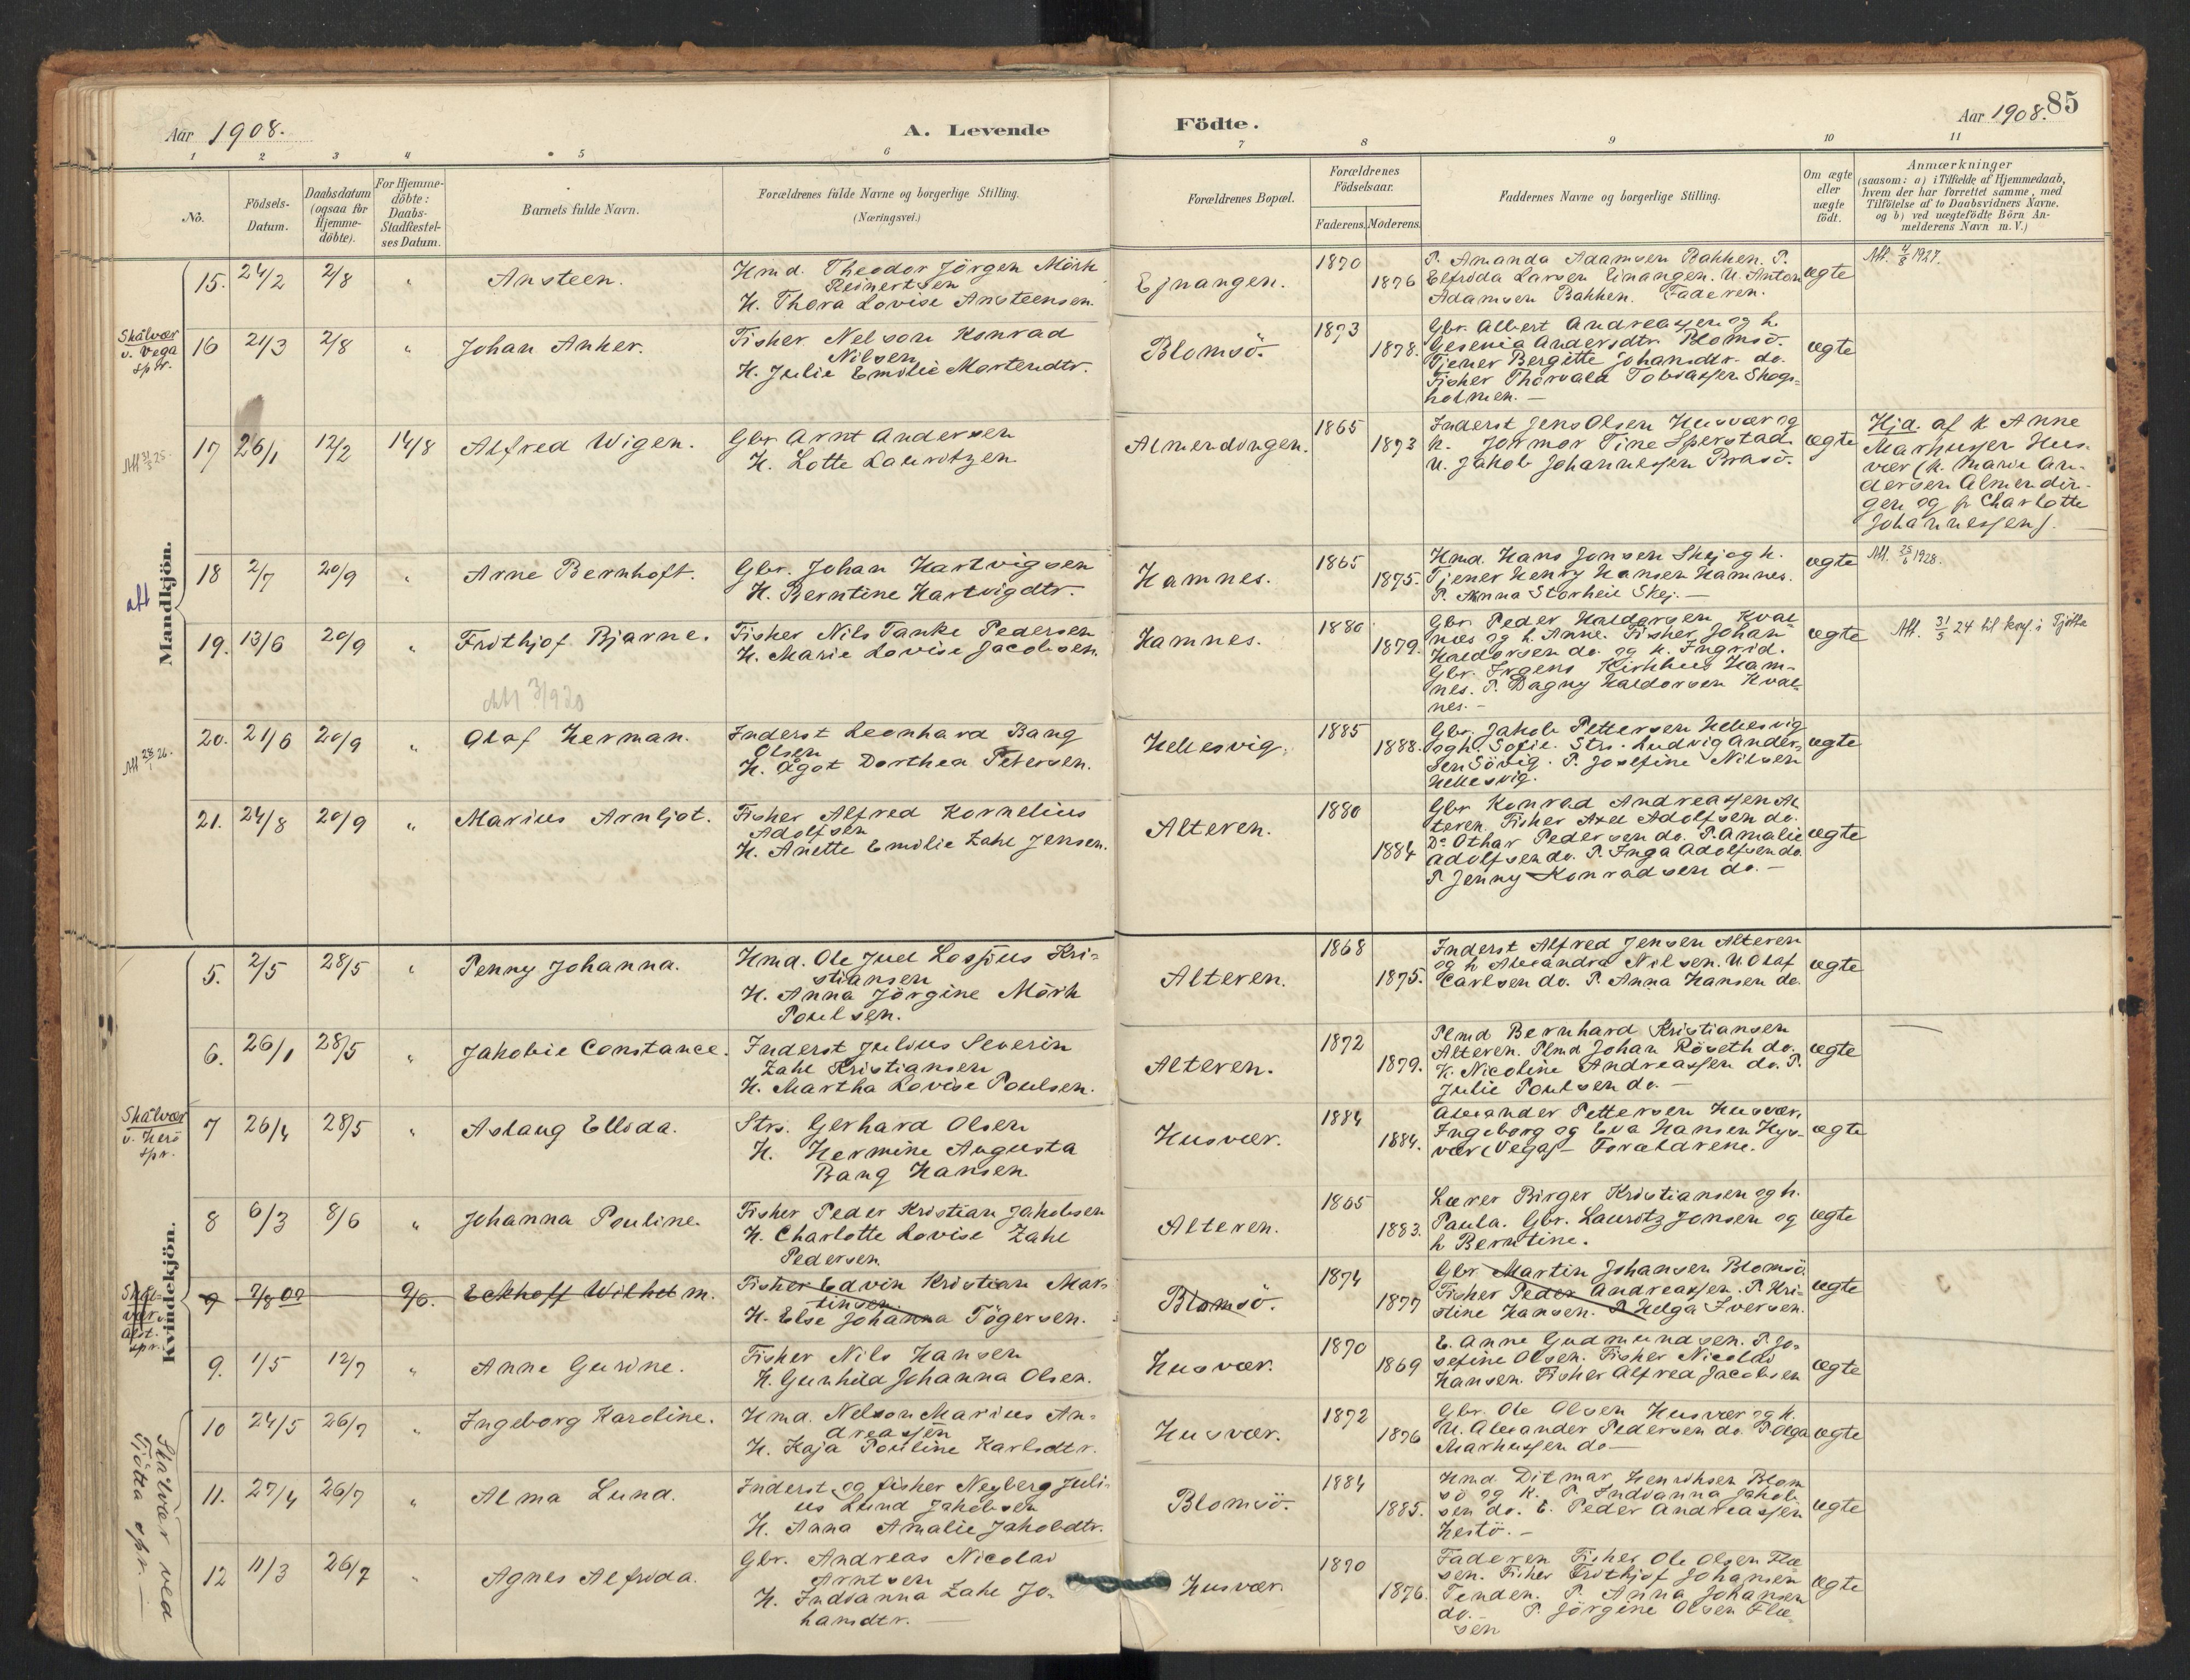 Aar 1908.
A. Levende
Födte.
Aar 1908.
85
1 2 3 4 5 6 7 8 9 10 11
No.
Födsels-
Datum.
Daabsdatum
(ogsaa for
Hjemme-
döbte).
For Hjemme-
döbte:
Daabs-
Stadfæstel-
ses Datum.
Barnets fulde Navn.
Forældrenes fulde Navne og borgerlige Stilling.
(Næringsvei.)
Forældrenes Bopæl.
Forældrenes
Födselsaar.
Faderens. Moderens.
Faddernes Navne og borgerlige Stilling.
Om ægte
eller
uægte
født.
Anmærkninger
(saasom: a) i Tilfælde af Hjemmedaab,
hvem der har forrettet samme, med
Tilföielse af to Daabsvidners Navne.
og b) ved uægtefödte Börn An-
melderens Navn m. V.)
Mandkjön.
att
15. 24/2 2/8 " Ansteen.
Hmd. Theodor Jörgen Mörk
Reinertsen
H. Thora Lovise Ansteensen.
Ejnangen.
1870
1876
P. Amanda Adamsen Bakken. P.
Elfrida Larsen Einangen. U. Anton
Adamsen Bakken. Faderen.
ægte
Att. 4/8 1927.
Skålvær
v. Vega
spr.
16 21/3 2/8 " Johan Anker.
Fisker Nelson Konrad
Nilsen
H. Julie Emilie Mortensdtr.
Blomsö.
1873
1878.
Gbr. Albert Andreassen og h.
Jesenia Andersdtr. Blomsö.
Tjener Bergitte Johansdtr. do.
Fisker Thorvald Tobiassen Skogs-
holmen. —
ægte
Att 31/3 25.
17 26/1 12/2 14/8 Alfred Wigen.
Gbr. Arnt Andersen
H. Lotte Lauritzen
Almendingen.
1865
1873
Inderst Jens Olsen Husvær og
h. Jormor Tine Sperstad
U. Jakob Johannessen Brasö.
ægte
Hjd. af k Anne
Markussen Hus-
vær (k. Marie An-
dersen Almendin-
gen og p Charlotte
Johannessen).
18 2/7 20/9 " Arne Bernhoft.
Gbr. Johan Hartvigsen
H. Berntine Hartvigdtr.
Hamnes.
1865
1875.
Hmd. Hans Jonsen Skej og h.
Tjener Henry Hansen Hamnes.
P. Anna Storheil Skej. —
ægte
Att. 25/6 1928.
19. 13/6 20/9 " Frithjof Bjarne.
Fisker Nils Tanke Pedersen
H. Marie Lovise Jacobsen.
Att 3/9 20
Hamnes.
1880
1879.
Gbr. Peder Haldorsen Kval
næs og h. Anne. Fisker Johan
Haldorsen do. og h. Ingrid.
Gbr. Irgens Kirkhus Ham-
nes. P. Dagny Haldorsen Kval-
nes. —
ægte
Att. 31/5 24 til konf. i Tjötta
Att 28/1 26.
20. 21/6 20/9 " Olaf Herman.
Inderst Leonhard Bang
Olsen
H. Ågot Dorthea Petersen.
Hellesvig.
1885
1888.
Gbr. Jakob Pettersen Hellesvig
og h. Sofie. Strs. Ludvig Ander-
sen Sövig. P. Josefine Nilsen
Hellesvig.
ægte
21. 24/8 20/9 " Marius Arnljot.
Fisker Alfred Kornelius
Adolfsen
H. Anette Emilie Zahl Jensen.
Alteren.
1880
1884
Gbr Konrad Andreassen Al
teren. Fisker Axel Adolfsen do.
Do Othar Pedersen do. P. Amalie
Adolfsen do. P. Inga Adolfsen do.
P Jenny Konradsen do. —
ægte
Kvindekjön.
5. 2/5 28/5 " Penny Johanna.
Hmd. Ole Juel Losjius Kri-
stiansen
H. Anna Jörgine Mörk
Poulsen.
Alteren.
1868
1875.
Inderst Alfred Jensen Alteren
og h Alexandra Nilsen. U Olaf
Carlsen do. P. Anna Hansen do.
ægte
6. 26/1 28/5 " Jakobie Constance.
Inderst Julius Severin
Zahl Kristiansen
H. Martha Lovise Poulsen.
Alteren.
1872
1879.
Plmd Bernhard Kristiansen
Alteren. Plmd Johan Röseth do.
K. Nicoline Andreassen do. P.
Julie Poulsen do. —
ægte
Skålvær
v. Herö
spr.
7 26/4 28/5 " Aslaug Ellida.
Strs. Gerhard Olsen
H. Hermine Augusta
Bang Hansen.
Husvær.
1884
1884.
Alexander Pettersen Husvær.
Ingeborg og Eva Hansen Hys-
vær (Vega) — Forældrene.
ægte
8 6/3 8/6 " Johanna Pouline.
Fisker Peder Kristian Jakobsen
H. Charlotte Lovise Zahl
Pedersen
Alteren.
1865
1883.
Lærer Birger Kristiansen og h.
Paula. Gbr. Lauritz Jonsen og
h Berntine.
ægte
9 7/8 00 9/6. Eckhoff Wilhelm.
Fisker Edvin Kristian Mar-
tinsen.
H. Else Johanna Tögersen.
Blomsö.
1874
1877
Gbr. Martin Johansen Blomsö.
Fisker Peder Andreassen. P. Kri-
stine Hansen. P Helga Iversen.
ægte
9. 1/5 12/7 " Anne Gurine.
Fisker Nils Hansen
H. Gunhild Johanna Olsen.
Husvær.
1870
1869
E. Anne Gudmundsen. P. Jo-
sefine Olsen. Fisker Nicolai
Hansen. Fisker Alfred Jacobsen
ægte
Skålvær ved
Tjötta spr. —
10 24/5 26/7 " Ingeborg Karoline.
Hmd. Nelson Marius An-
dreassen
H. Kaja Pouline Karlsdtr.
Husvær.
1872
1876
Gbr. Ole Olsen Husvær og h.
U. Alexander Pedersen do. P. Olga
Markussen do —
ægte
11. 27/4 26/7 " Alma Lund.
Inderst og fisker Neyberg Juli-
us Lund Jakobsen
H. Anna Amalie Jakobdtr.
Blomsö.
1884
1885.
Hmd. Ditmar Henriksen Blom
sö og h. P. Indianna Jakob
sen do. E. Peder Andreassen
Hestö. —
ægte
12 11/3 26/7 " Agnes Alfrida.
Gbr. Andreas Nicolai
Arntsen
H. Indianna Zahl Jo-
hansdtr. —
Husvær.
1870
1876.
Faderen Fisker Ole Olsen Flæ
sen. Fisker Frithjof Johansen
Tenden. P. Anna Johansen
do. — P. Jörgine Olsen Flæ-
sen
ægte